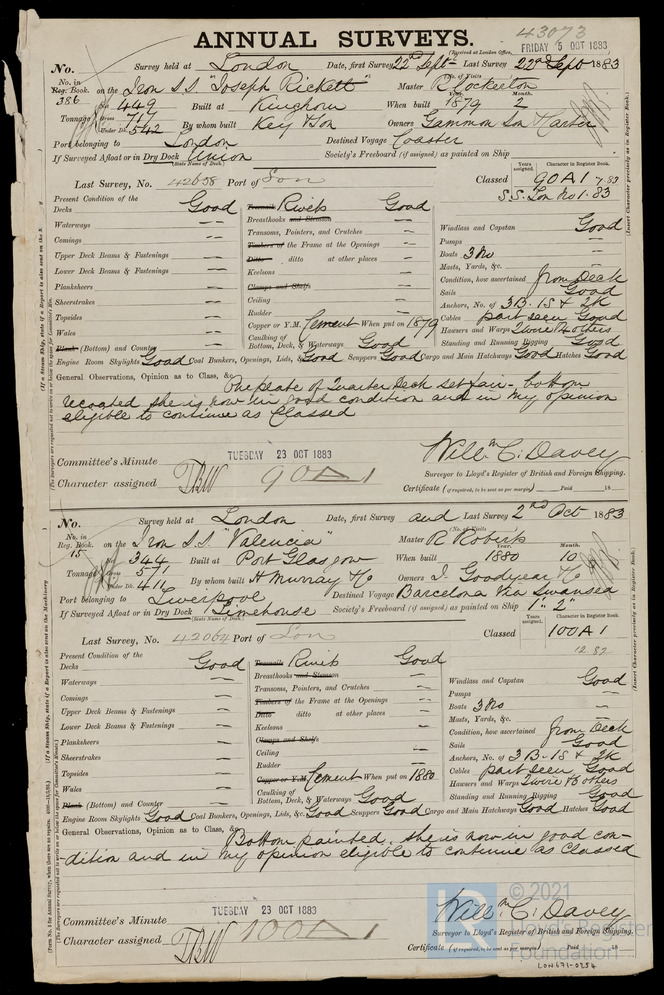 43073
ANNUAL SURVEYS.
(Received at London Office, FRIDAY 5 OCT 1883
No. Survey held at London Date, first Survey 22nd Sept Last Survey 22nd Sept 1883
No. in Reg. Book. 386 on the Iron S.S. "Joseph Rickett" Master
(No. of Visits
Tonnage Net 449 Gross 717 Under Dk. 542 Built at Kinghorn When built Year. 1879 Month. 2
By whom built Key & Son Owners Gammon Son & Carter
Port belonging to London Destined Voyage Coaster
If Surveyed Afloat or in Dry Dock Union Society's Freeboard (if assigned) as painted on Ship
(State Name of Dock.)
Last Survey, No. 42658 Port of Lon Classed Years assigned. Character in Register Book. 90A1 7.82
S.S. Lon No 1-83
Present Condition of the
Decks Good
Waterways —
Comings —
Upper Deck Beams & Fastenings —
Lower Deck Beams & Fastenings —
Planksheers —
Sheerstrakes —
Topsides —
Wales —
Plank (Bottom) and Counter —
Treenails Rivets Good
Breasthooks and Stemson —
Transoms, Pointers, and Crutches —
Timbers of the Frame at the Openings —
Ditto ditto at other places —
Keelsons —
Clamps and Shelfs —
Ceiling —
Rudder —
Copper or Y.M. Cement When put on 1879
Caulking of Bottom, Deck, & Waterways Good
Windlass and Capstan Good
Pumps —
Boats 3 No
Masts, Yards, &c. —
Condition, how ascertained from Deck
Sails Good
Anchors, No. of 3B. 1S & 2K
Cables part seen Good
Hawsers and Warps 2 wire & others
Standing and Running Rigging Good
Engine Room Skylights Good Coal Bunkers, Openings, Lids, &c. Good Scuppers Good Cargo and Main Hatchways Good Hatches Good
General Observations, Opinion as to Class, &c. One plate of Quarter Deck set fair - bottom
recoated she is now in good condition and in my opinion
eligible to continue as Classed
Committee's Minute TUESDAY 23 OCT 1883
Character assigned 90A1
Willm C. Davey
Surveyor to Lloyd's Register of British and Foreign Shipping.
Certificate (if required, to be sent as per margin) Paid 18
No. Survey held at London Date, first Survey and Last Survey 2nd Oct 1883
No. in Reg. Book. 15 on the Iron S.S. "Valencia" Master R Roberts
(No. of Visits
Tonnage Net 344 Gross 571 Under Dk. 411 Built at Port Glasgow When built Year. 1880 Month. 10
By whom built H Murray & Co Owners J. Goodyear & Co
Port belonging to Liverpool Destined Voyage Barcelona via Swansea
If Surveyed Afloat or in Dry Dock Limehouse Society's Freeboard (if assigned) as painted on Ship 1" 2"
(State Name of Dock.)
Last Survey, No. 42064 Port of Lon Classed Years assigned. Character in Register Book. 100A1
12.82
Present Condition of the
Decks Good
Waterways —
Comings —
Upper Deck Beams & Fastenings —
Lower Deck Beams & Fastenings —
Planksheers —
Sheerstrakes —
Topsides —
Wales —
Plank (Bottom) and Counter —
Treenails Rivets Good
Breasthooks and Stemson —
Transoms, Pointers, and Crutches —
Timbers of the Frame at the Openings —
Ditto ditto at other places —
Keelsons —
Clamps and Shelfs —
Ceiling —
Rudder —
Copper or Y.M. Cement When put on 1880
Caulking of Bottom, Deck, & Waterways Good
Windlass and Capstan Good
Pumps —
Boats 3 No
Masts, Yards, &c.
Condition, how ascertained from Deck
Sails Good
Anchors, No. of 3 B. 1S & 2K
Cables part seen Good
Hawsers and Warps 2 wire & 3 others
Standing and Running Rigging Good
Engine Room Skylights Good Coal Bunkers, Openings, Lids, &c. Good Scuppers Good Cargo and Main Hatchways Good Hatches Good
General Observations, Opinion as to Class, &c. Bottom painted. she is now in good con-
-dition and in my opinion eligible to continue as Classed
Committee's Minute TUESDAY 23 OCT 1883
Character assigned 100A1
Willm C. Davey
Surveyor to Lloyd's Register of British and Foreign Shipping.
Certificate (if required, to be sent as per margin) Paid 18
© 2021
Lloyd's Register
Foundation
LON671-0254